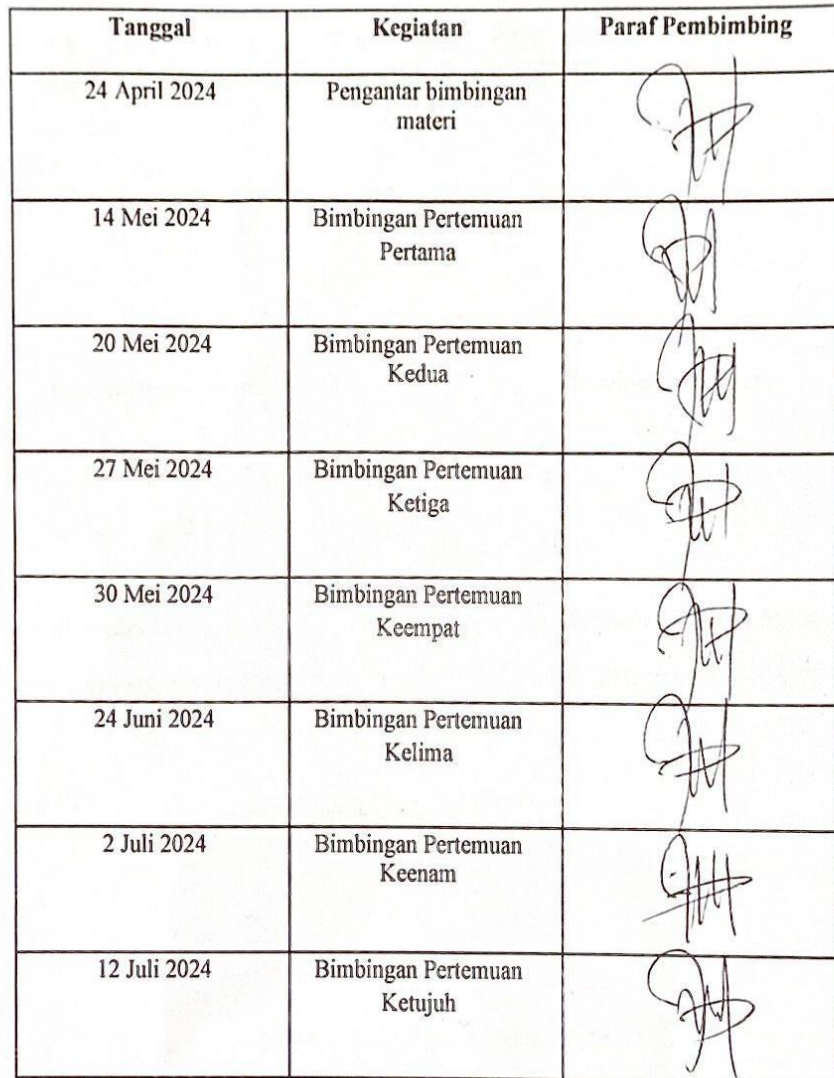 Tanggal Kegiatan Paraf Pembimbing
24 April 2024 Pengantar bimbingan
materi
14 Mei 2024 Bimbingan Pertemuan
Pertama
20 Mei 2024 Bimbingan Pertemuan
Kedua
27 Mei 2024 Bimbingan Pertemuan
Ketiga
30 Mei 2024 Bimbingan Pertemuan
Keempat
24 Juni 2024 Bimbingan Pertemuan
Kelima
2 Juli 2024 Bimbingan Pertemuan
Keenam
12 Juli 2024 Bimbingan Pertemuan
Ketujuh